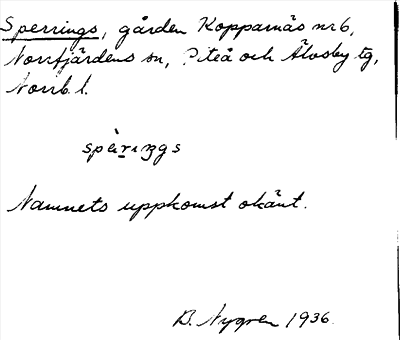 Sperrings, gården Kopparnäs nr 6,
Norrfjärdens sn, Piteå och Älvsby tg,
Norrb. l.
Namnets uppkomst okänt.
B. Nygren 1936.